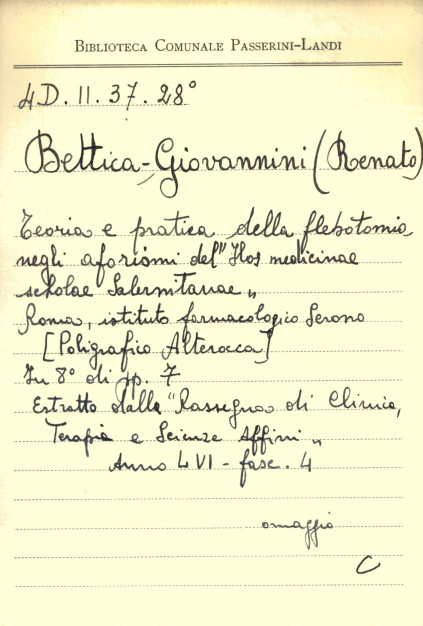 BIBLIOTECA COMUNALE PASSERINI-LANDI
4D. II. 37. 28°
Bettica-Giovannini (Renato)
Teoria e pratica della flebotomia
negli aforismi del "Flos medicinae
scholae Salernitanae „
Roma, istituto farmacologico Serono
[Poligrafico Alterocca]
In 8° di pp. 7
Estratto dalla "Rassegna di Clinica,
Terapia e Scienze Affini „
Anno LVI - fasc. 4
omaggio
C